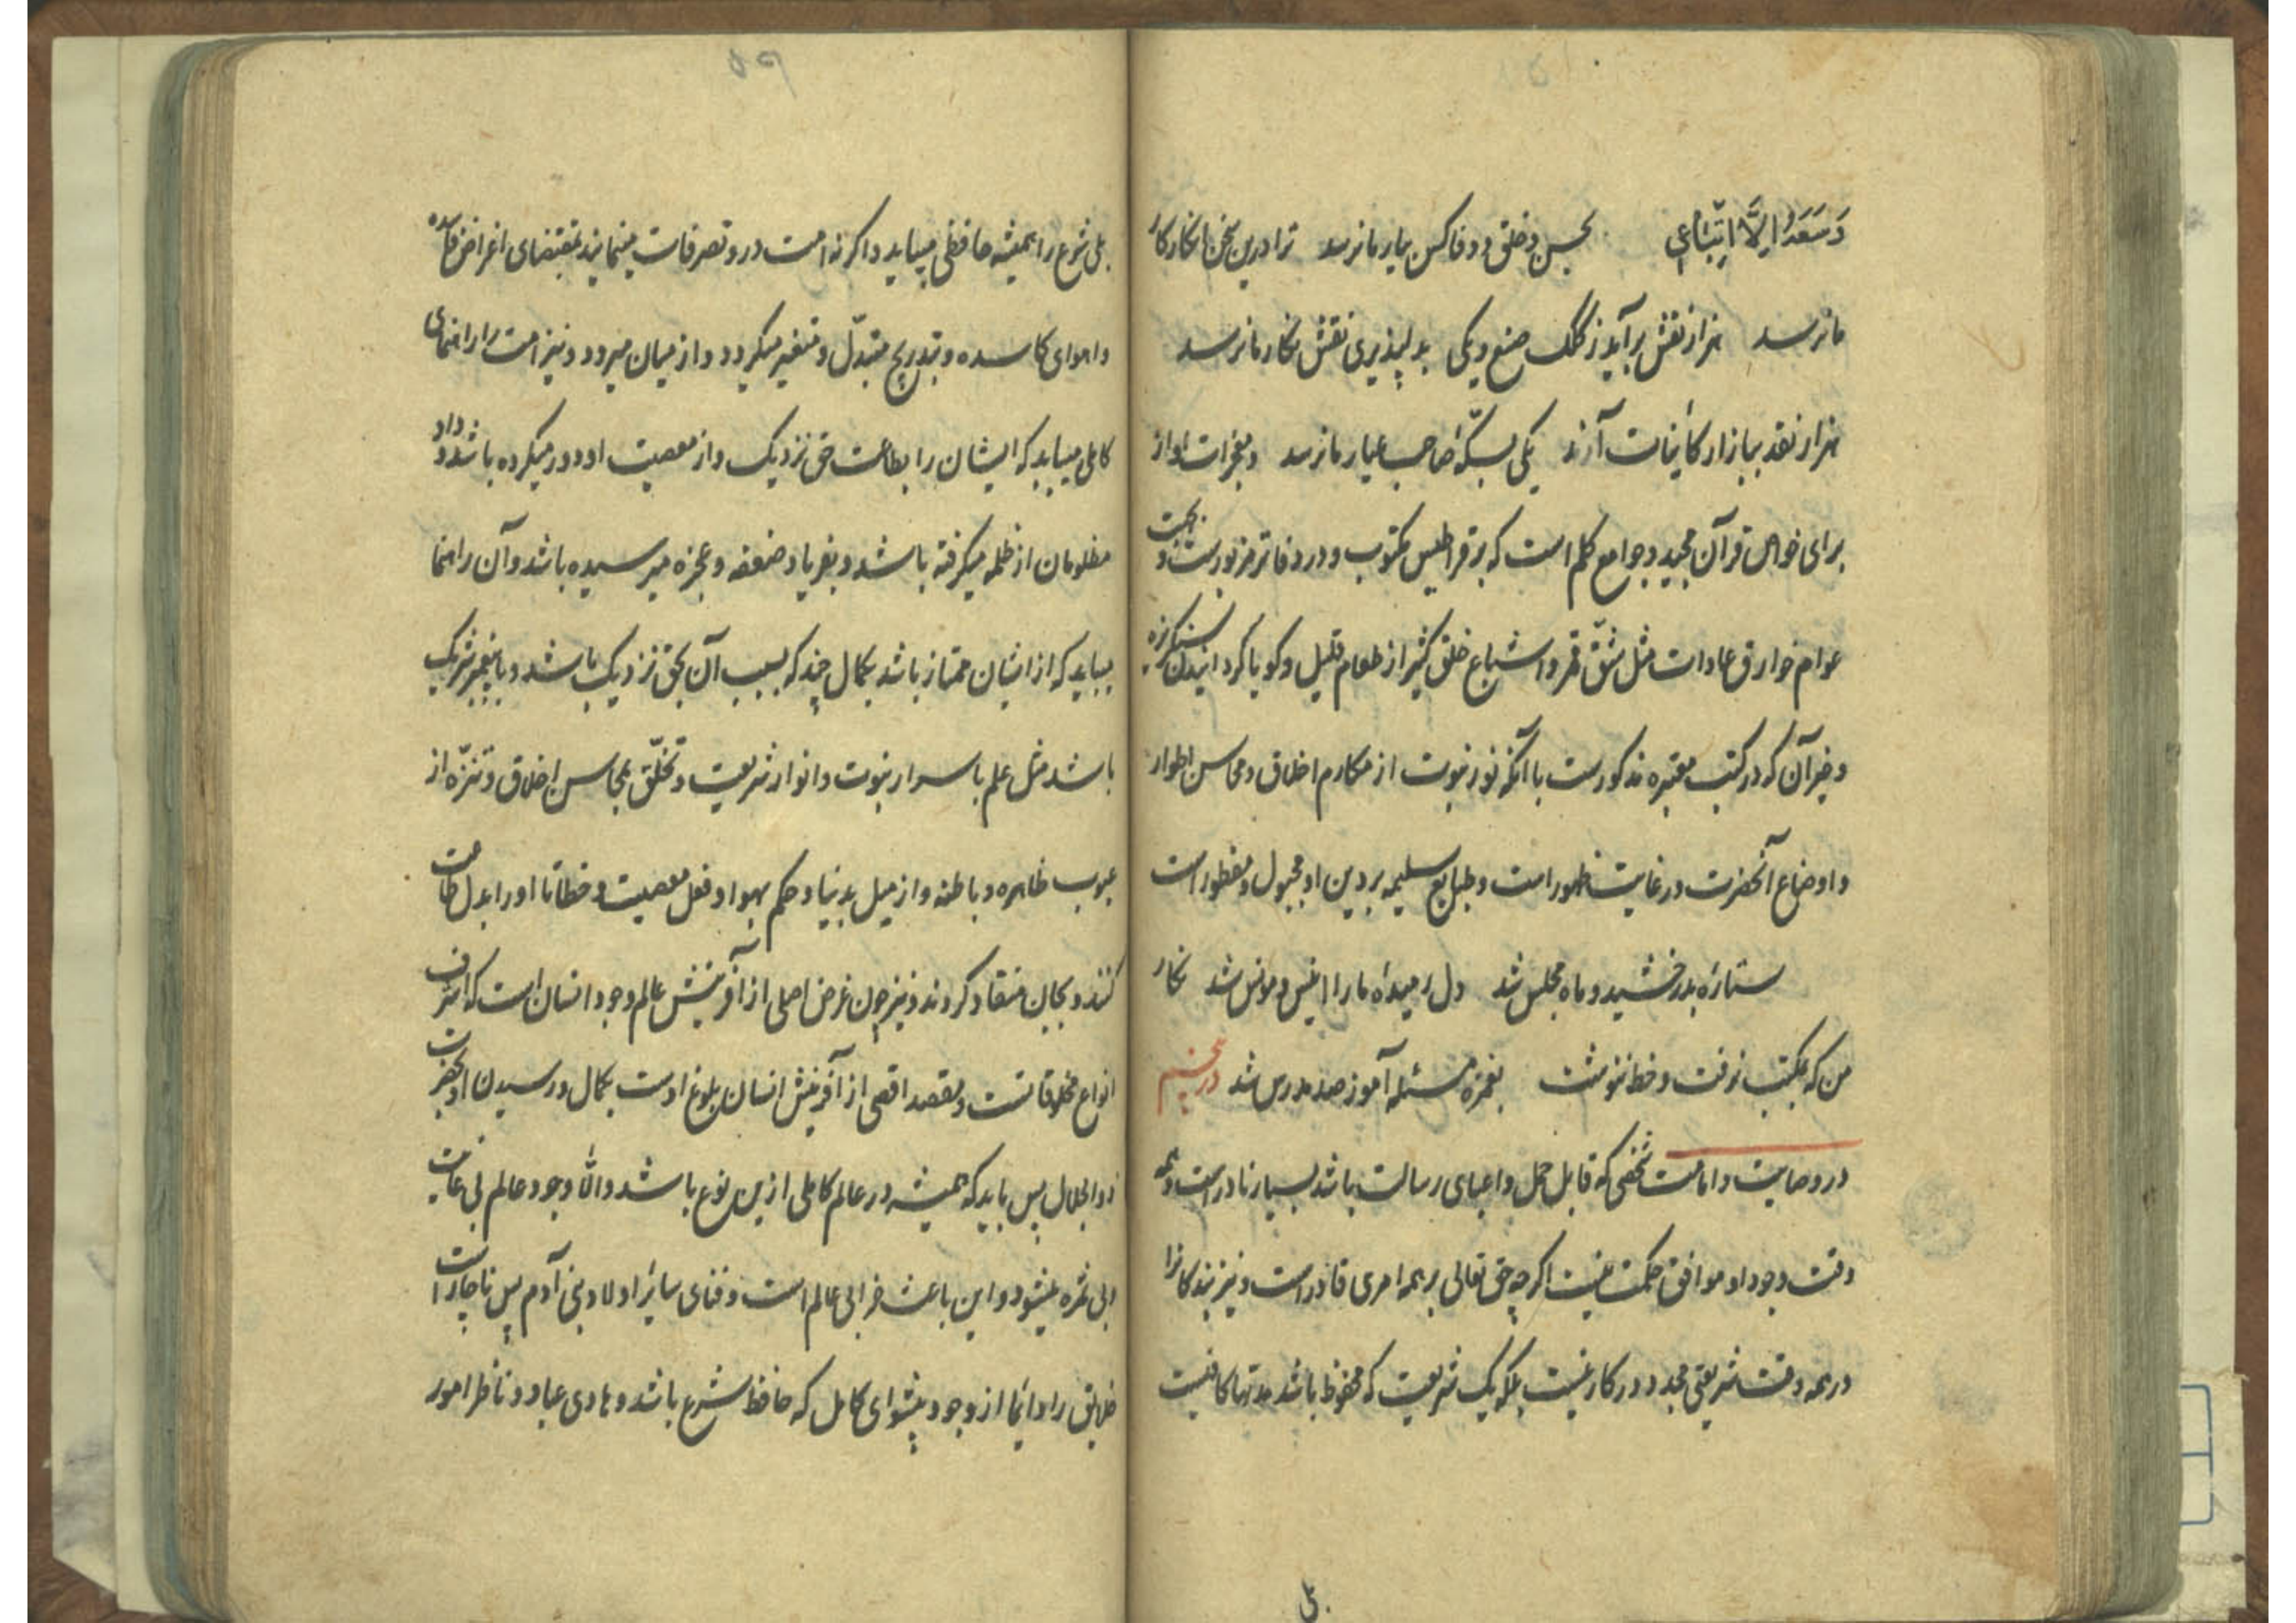 وَسَعَهُ اِلَّا اِتِّبَاعِي بحسن و خلق و وفا کس بیار ما نرسد ترا درین سخن انکار کار
ما نرسد هزار نقش برآید ز کلک صنع و یکی بدلپذیری نقش نگار ما نرسد
هزار نقد ببازار کاینات آرند یکی بسکّهٔ صاحب عیار ما نرسد و معجزات او از
برای خواص قرآن مجید و جوامع کلم است که بر قراطیس مکتوب و در دفاتر مزبورست و بجهت
عوام خوارق عادات مثل شقّ قمر و اشباع خلق کثیر از طعام قلیل و کویا کردانیدن سنکریزه
و غیر آن که در کتب معتبره مذکورست با آنکه نور نبوت از مکارم اخلاق و محاسن اطوار
و اوضاع آنحضرت در غایت ظهور است و طبایع سلیمه بر دین او مجبول و مفطور است
ستارهٔ بدرخشید و ماه مجلس شد دل رمیدهٔ ما را انیس و مونس شد نکار
من که بمکتب نرفت و خط ننوشت بغمزه مسئله آموز صد مدرس شد در پنجم
در وصایت و امامت شخصی که قابل حمل و اعبای رسالت باشد بسیار نادر است و همه
وقت وجود او موافق حکمت نیست اکرچه حق تعالی بر همه امری قادر است و نیز بندکانرا
در همه وقت شریعتی مجدد در کار نیست بلکه یک شریعت که محفوظ باشد مدتها کافیست
بلی
بلی شرع را همیشه حافظی میباید و اکر نه امت درو تصرفات مینمایند بمقتضای اغراض فاسده
و اهوای کاسده و بتدریج متبدّل و متغیر میکردد و از میان میرود و نیز امت را راهنمای
کاملی میباید که ایشان را بطاعت حق نزدیک و از معصیت او دور میکرده باشد و داد
مظلومان از ظلمه میکرفته باشد و بفریاد ضعفه و عجزه میرسیده باشد و آن راهنما
میباید که از ایشان ممتاز باشد بکمالی چند که بسبب آن بحق نزدیک باشد و با پیغمبر شریک
باشد مثل علم باسرار نبوت و انوار شریعت و تخلّق بمحاسن اخلاق و تنزّه از
عیوب ظاهره و باطنه و از میل بدنیا و حکم بهوا و فعل معصیت و خطا تا او را بدل طاعت
کنند و بجان منقاد کردند و نیز چون غرض اصلی از آفرینش عالم وجود انسان است که اشرف
انواع مخلوقاتست و مقصد اقصی از آفرینش انسان بلوغ اوست بکمال و رسیدن او بحضرت
ذوالجلال پس باید که همیشه در عالم کاملی ازین نوع باشد و الّا وجود عالم بی غایت
و بی ثمره میشود و این باعث خرابی عالم است و فنای سایر اولاد بنی آدم پس ناچار است
خلایق را دائما از وجود پیشوای کامل که حافظ شرع باشد و هادی عباد و ناظر امور